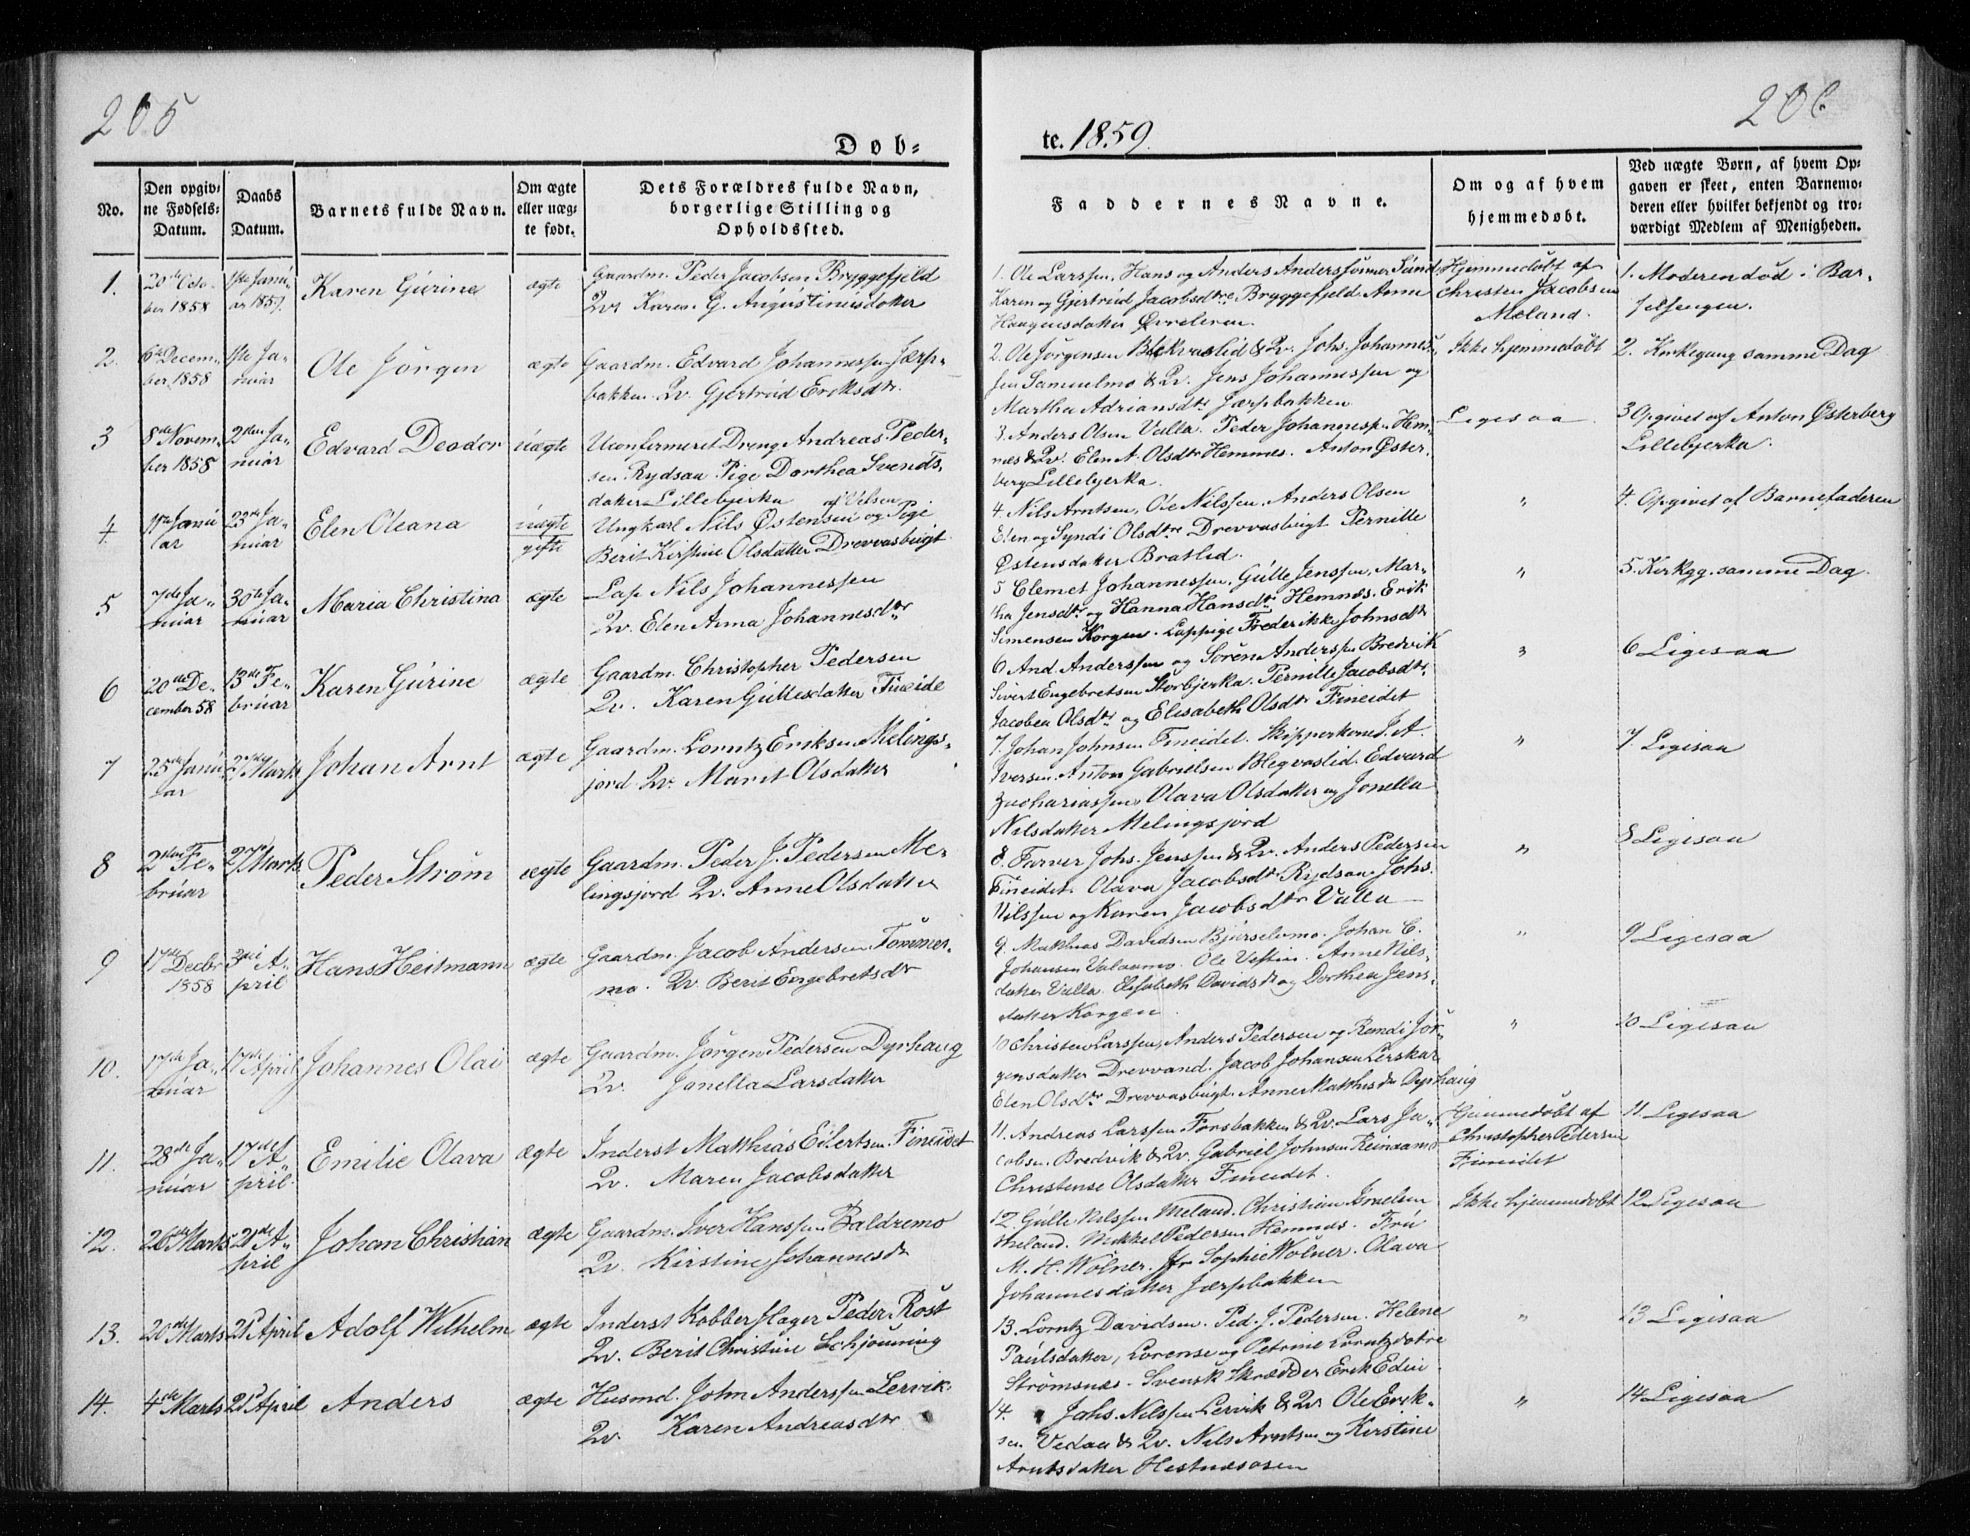 205
206
Døb=
te. 1859.
No.
Den opgiv=
ne Fødsels=
Datum.
Daabs
Datum.
Barnets fulde Navn.
Om ægte
eller uæg=
te født.
Dets Forældres fulde Navn,
borgerlige Stilling og
Opholdssted.
Faddernes Navne.
Om og af hvem
hjemmedøbt.
Ved uægte Børn, af hvem Op=
gaven er skeet, enten Barnemo=
deren eller hvilket bekjendt og tro=
værdigt Medlem af Menigheden.
1.
20de Octo-
ber 1858
1ste Janu-
ar 1859.
Karen Gurine
ægte
Gaardm. Peder Jacobsen Bryggefjeld
Qv. Karen G. Augustinusdatter
1. Ole Larssen, Hans og Anders Anderssønner Sund
Karen og Gjertrud Jacobsdtre Bryggefjeld. Anne
Haagensdatter Øvreleren.
Hjemmedøbt af
Christen Jacobsen
Meland.
1. Moderen død i Bar-
selsengen.
2.
6te Decem-
ber 1858
1ste Ja-
nuar
Ole Jørgen
ægte
Gaardm. Edvard Johannessen Jærp-
bakken Qv. Gjertrud Eriksdtr.
2. Ole Jørgensen Blekvaslid & Qv. Johs. Johannes-
sen Samuelmo & Qv. Jens Johannessen og
Martha Adriansdtr Jærpbakken
Ikke hjemmedøbt
2. Kirkegang samme Dag
3
8de Novem-
ber 1858
2den Ja-
nuar
Edvard Deodor
uægte
Uconfirmeret Dreng Andreas Peder-
sen Rydsaa Pige Dorthea Svends-
datter Lillebjerka
3. Anders Olsen Valla. Peder Johannessen Hem-
næs & Qv. Elen A. Olsdtr Hemnes. Anton Øster-
berg Lillebjerka.
Ligesaa
3 Opgivet af Anton Østerberg
Lillebjerka.
4.
11te Janu-
ar
23de Ja-
nuar
Elen Oleana
uægte
gifte
af Vefsen
Ungkarl Nils Østensen og Pige
Berit Kirstine Olsdatter Drevvasbugt
4. Nils Arntsen, Ole Nilssen, Anders Olsen
Elen og Syndi Olsdtre Drevvasbugt Pernille
Østensdatter Bratlid.
"
4. Opgivet af Barnefaderen
5
7de Ja-
nuar
30te Ja-
nuar
Maria Christina
ægte
Lap Nils Johannessen
Qv. Elen Anna Johannesdtr
5 Clemet Johannessen, Gulle Jenssen, Mar-
tha Jensdtr og Hanna Hansdtr Hemnæs. Erik
Simensen Korgen. Lappige Frederikke Johnsdtr
"
5. Kirkgg. samme Dag.
6
20de De-
cember 58
13de Fe-
bruar
Karen Gurine
ægte
Gaardm. Christopher Pedersen
Qv. Karen Gullesdatter Fineide
6 And. Anderssen og Søren Anderssen Bredvik
Sivert Engebretsen Storbjerka. Pernille Jacobsdtr
Jacobea Olsdtr og Elisabeth Olsdtr Fineidet
"
6 Ligesaa
7
25de Janu-
ar
27de Marts
Johan Arnt
ægte
Gaardm. Lorntz Eriksen Melings-
jord Qv. Marit Olsdatter
7. Johan Johnsen Fineidet. Skipperkone J. A.
Iversen. Anton Gabrielsen Blegvaslid. Edvard
Zachariassen, Olava Olsdatter og Jonella
Nilsdatter Melingsjord
"
7. Ligesaa
8
2den Fe-
bruar
27 Marts
Peder Strøm
ægte
Gaardm. Peder J. Pedersen Me-
lingsjord Qv. Anne Olsdatter
8. Farver Johs. Jenssen & Qv. Anders Pedersen
Fineidet. Olava Jacobsdtr Rydsaa. Johs.
Nilssen og Karen Jacobsdtr Valla
"
8 Ligesaa
9
17de Decbr
1858
3die A-
pril
Hans Heitmann
ægte
Gaardm. Jacob Andersen Tømmer-
mo. Qv. Berit Engebretsdtr
9. Matthias Davidsen Bjurselvmo. Johan C.
Johansen Valaamo. Ole Vestin. Anne Nils-
datter Valla. Elisabeth Davidsdtr og Dorthea Jens-
datter Korgen
"
9 Ligesaa
10.
17de Ja-
nuar
17de April
Johannes Olai
ægte
Gaardm. Jørgen Pedersen Dyrhaug
Qv. Jonella Larsdatter
10 Christen Larssen, Anders Pedersen og Remdi Jør-
gensdatter Drevvand. Jacob Johansen Lerskar
Elen Olsdtr Drevvasbugt. Anne Matthisdtr Dyrhaug
"
10 Ligesaa
11.
28de Ja-
nuar
17de A-
pril
Emilie Olava
ægte
Inderst Matthias Eilertsen Fineidet
Qv. Maren Jacobsdatter
11. Andreas Larssen Forsbakken & Qv. Lars Ja-
cobsen Bredvik & Qv. Gabriel Johnsen Reinaamo
Christense Olsdatter Fineidet.
Hjemmedøbt af
Christopher Pedersen
Fineidet
11. Ligesaa
12.
26de Marts
21de A-
pril
Johan Christian
ægte
Gaardm. Iver Hanssen Baldremo
Qv. Kirstine Johannesdtr
12. Gulle Nilssen Meland. Christian Israelsen
Meland. Mikkel Pedersen Hemnes. Fru
M. H. Wølner. Jfr Sophie Wølner. Olava
Johannesdatter Jærpbakken
Ikke hjemmedøbt
12 Ligesaa
13.
20de Marts
21 April
Adolf Wilhelm
ægte
Inderst Kobberslager Peder Røst
Qv. Berit Christine Schjønning
13. Lorntz Davidsen. Ped. J. Pedersen. Helene
Paulsdatter, Lorense og Petrine Lorntzdøtre
Strømsnæs. Svensk Skrædder Erik Edin
"
13 Ligesaa
14.
4de Marts
21 April
Anders
ægte
Husmd. John Anderssen Lervik.
Qv. Karen Andreasdtr
14. Johs. Nilssen Lervik & Qv. Ole Erik-
sen Vedaa & Qv. Nils Arntsen og Kirstine
Arntsdatter Hestnæsosen
"
14 Ligesaa